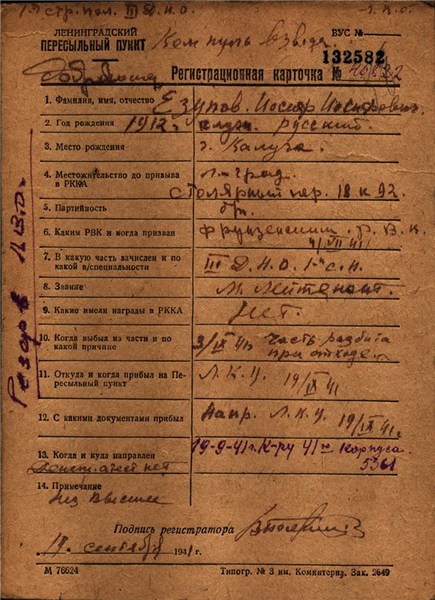 1й стр. пол. III Д.Н.О. Л.К.О.
ЛЕНИНГРАДСКИЙ
ПЕРЕСЫЛЬНЫЙ ПУНКТ
ВУС №
Ком пуль взвода
132582
Регистрационная карточка №
1. Фамилия, имя, отчество Езупов Иосиф Иосифович
2. Год рождения 1912 г. служ. русский
3. Место рождения г. Калуга.
4. Местожительство до призыва в РККА
л-град.
Столярный пер. 18 к 92.
5. Партийность бп.
6. Каким РВК и когда призван Фрунзенским Р.В.К.
4/VII 41 г.
7. В какую часть зачислен и по какой в/специальности
III Д.Н.О. 1й с.п.
8. Звание М. Лейтенант.
9. Какие имели награды в РККА нет.
10. Когда выбыл из части и по какой причине
3/IX 41 г. Часть разбита
при отходе.
11. Откуда и когда прибыл на Пересыльный пункт
Л.К.У. 19/IX 41
12. С какими документами прибыл Напр. Л.К.У. 19/IX 41 г.
13. Когда и куда направлен 19-9-41 г. К-ру 41го корпуса
5361
14. Примечание
Резерв Л.В.О.
Подпись регистратора
19 сентября 1941 г.
М 76624
Типогр. № 3 им. Коминтерна. Зак. 2649